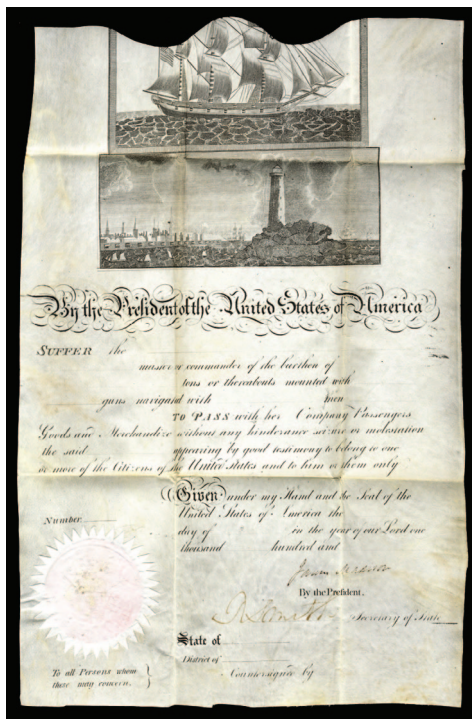 By the President of the United States of America
SUFFER the
master or commander of the burthen of
tons or thereabouts mounted with
guns navigated with men
TO PASS with her Company Passengers
Goods and Merchandize without any hinderance seizure or molestation
the said appearing by good testimony to belong to one
or more of the Citizens of the United States and to him or them only
Given under my Hand and the Seal of the
United States of America the
Number
day of in the year of our Lord one
thousand hundred and
James Madison
By the President.
R Smith Secretary of State
State of
District of
To all Persons whom
these may concern.
Countersigned by